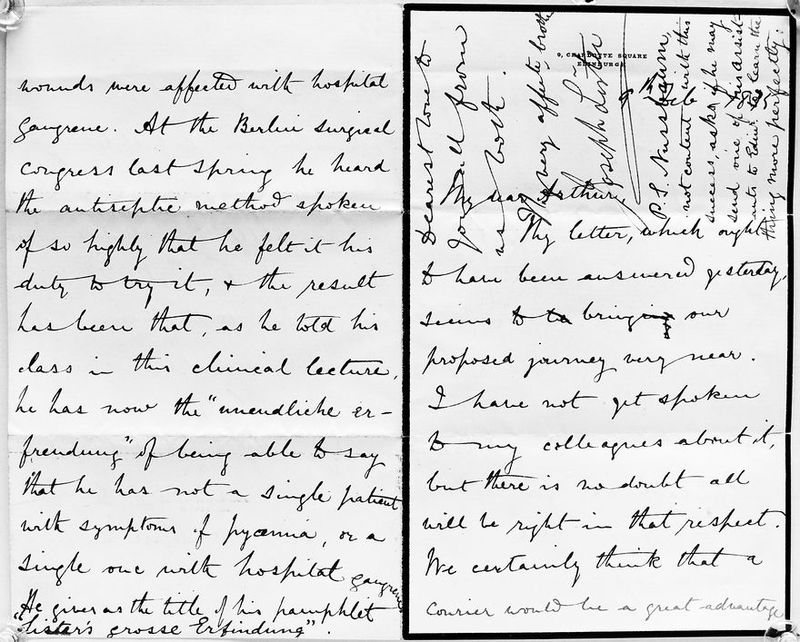 wounds were affected with hospital
gangrene. At the Berlin surgical
congress last spring he heard
the antiseptic method spoken
of so highly that he felt it his
duty to try it, & the result
has been that, as he told his
class in this clinical lecture,
he has now the "unendliche er-
freudung" of being able to say
that he has not a single patient
with symptoms of pyæmia, or a
single one with hospital gangrene
He gives as the title of his pamphlet
"Lister's grosse Erfindung".
9, CHARLOTTE SQUARE
EDINBURGH
My dear Arthur,
Thy letter, which ought
to have been answered yesterday,
seems to bring our
proposed journey very near.
I have not yet spoken
to my colleagues about it,
but there is no doubt all
will be right in that respect.
We certainly think that a
courier would be a great advantage
Dearest love to
you all from
us both.
Thy very affecte. brother
Joseph Lister
P.S. Nussbaum,
not content with this
success, asks if he may
send one of his assist-
ants to Edinr. to learn the
thing more perfectly.